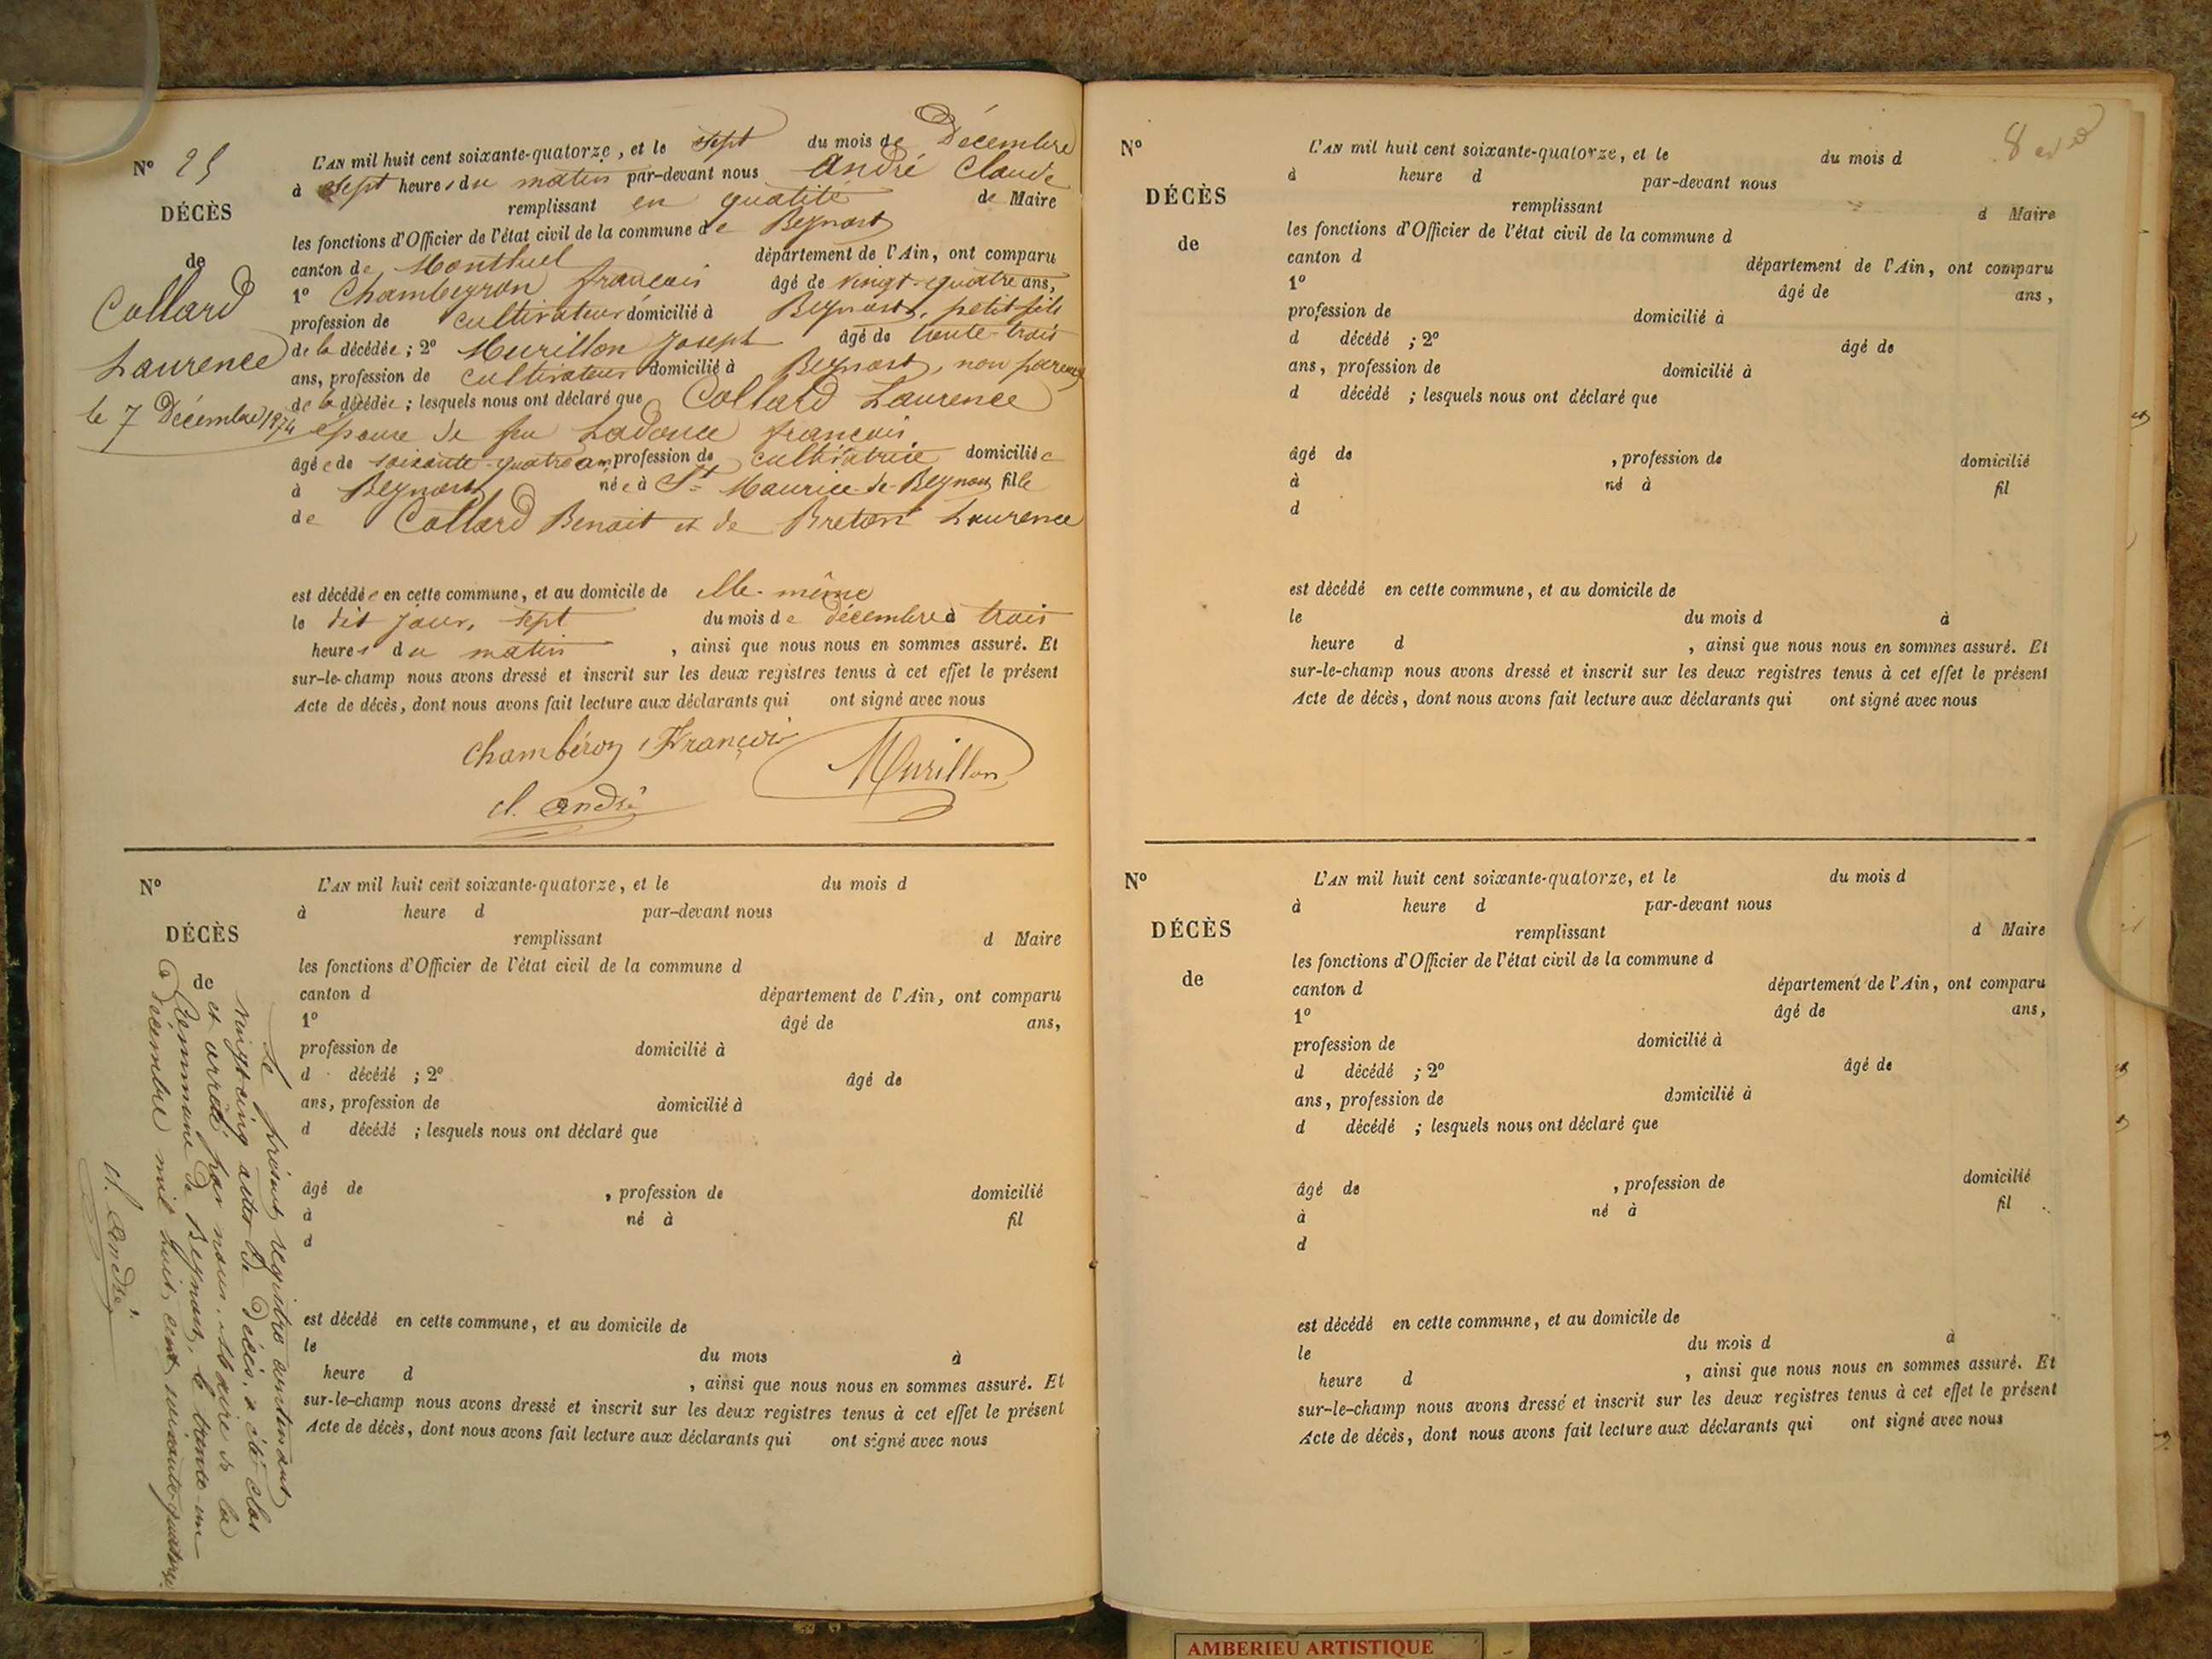 N° 25
DÉCÈS
de
Collard
Laurence
le 7 Décembre 1874
L'AN mil huit cent soixante-quatorze, et le sept du mois de Décembre
à sept heures du matin par-devant nous André Claude
remplissant en qualité de Maire
les fonctions d'Officier de l'état civil de la commune de Beynost
canton de Montluel département de l'Ain, ont comparu
1° Chambeyron françois âgé de vingt-quatre ans,
profession de cultivateur domicilié à Beynost, petit fils
de la décédée ; 2° Murillon Joseph âgé de trente-trois
ans, profession de cultivateur domicilié à Beynost, non parent
de la décédée ; lesquels nous ont déclaré que Collard Laurence
épouse de feu Ladouce françois,
âgée de soixante-quatre ans profession de cultivatrice domiciliée
à Beynost née à St Maurice-de-Beynost fille
de Collard Benoit et de Breton Laurence
est décédée en cette commune, et au domicile de elle-même
le dit jour, sept du mois de décembre à trois
heures du matin , ainsi que nous nous en sommes assuré. Et
sur-le-champ nous avons dressé et inscrit sur les deux registres tenus à cet effet le présent
Acte de décès, dont nous avons fait lecture aux déclarants qui ont signé avec nous
Chambéron François
Murillon
Cl. André
N°
DÉCÈS
de
L'AN mil huit cent soixante-quatorze, et le du mois d
à heure d par-devant nous
remplissant d Maire
les fonctions d'Officier de l'état civil de la commune d
canton d département de l'Ain, ont comparu
1° âgé de ans,
profession de domicilié à
d décédé ; 2° âgé de
ans, profession de domicilié à
d décédé ; lesquels nous ont déclaré que
âgé de , profession de domicilié
à né à fil
d
est décédé en cette commune, et au domicile de
le du mois à
heure d , ainsi que nous nous en sommes assuré. Et
sur-le-champ nous avons dressé et inscrit sur les deux registres tenus à cet effet le présent
Acte de décès, dont nous avons fait lecture aux déclarants qui ont signé avec nous
Le présent registre contenant
vingt-cinq actes de décès, a été clos
et arrêté par nous, Maire de la
Commune de Beynost, le trente-un
décembre mil huit cent soixante-quatorze.
Cl. André
N°
DÉCÈS
de
L'AN mil huit cent soixante-quatorze, et le du mois d
à heure d par-devant nous
remplissant d Maire
les fonctions d'Officier de l'état civil de la commune d
canton d département de l'Ain, ont comparu
1° âgé de ans,
profession de domicilié à
d décédé ; 2° âgé de
ans, profession de domicilié à
d décédé ; lesquels nous ont déclaré que
âgé de , profession de domicilié
à né à fil
d
est décédé en cette commune, et au domicile de
le du mois d à
heure d , ainsi que nous nous en sommes assuré. Et
sur-le-champ nous avons dressé et inscrit sur les deux registres tenus à cet effet le présent
Acte de décès, dont nous avons fait lecture aux déclarants qui ont signé avec nous
N°
DÉCÈS
de
L'AN mil huit cent soixante-quatorze, et le du mois d
à heure d par-devant nous
remplissant d Maire
les fonctions d'Officier de l'état civil de la commune d
canton d département de l'Ain, ont comparu
1° âgé de ans,
profession de domicilié à
d décédé ; 2° âgé de
ans, profession de domicilié à
d décédé ; lesquels nous ont déclaré que
âgé de , profession de domicilié
à né à fil
d
est décédé en cette commune, et au domicile de
le du mois d à
heure d , ainsi que nous nous en sommes assuré. Et
sur-le-champ nous avons dressé et inscrit sur les deux registres tenus à cet effet le présent
Acte de décès, dont nous avons fait lecture aux déclarants qui ont signé avec nous
AMBERIEU ARTISTIQUE